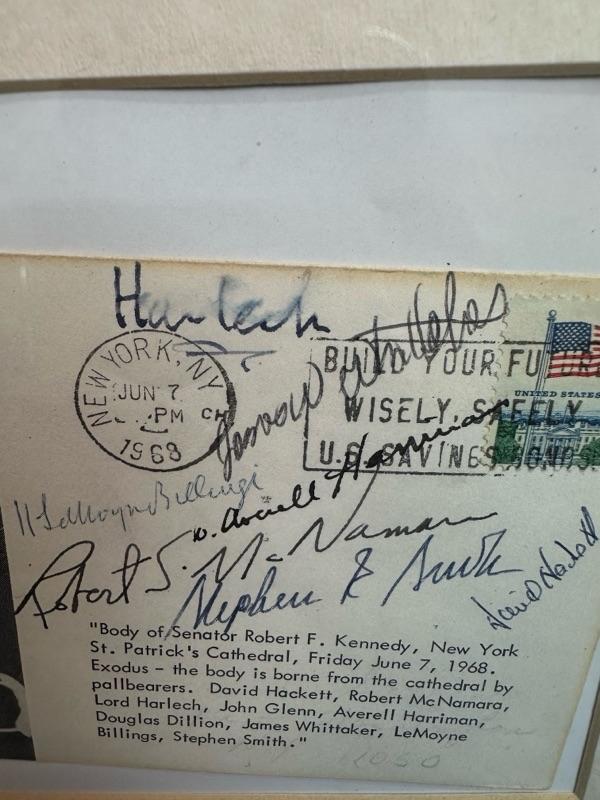 Harlech
NEW YORK, NY
JUN 7
PM
1968
BUILD YOUR FUTURE
WISELY, SAFELY
U.S. SAVINGS BONDS
UNITED STATES
W. Averell Harriman
LeMoyne Billings
Robert S. McNamara
Stephen E Smith
David Hackett
"Body of Senator Robert F. Kennedy, New York
St. Patrick's Cathedral, Friday June 7, 1968.
Exodus - the body is borne from the cathedral by
pallbearers. David Hackett, Robert McNamara,
Lord Harlech, John Glenn, Averell Harriman,
Douglas Dillion, James Whittaker, LeMoyne
Billings, Stephen Smith."